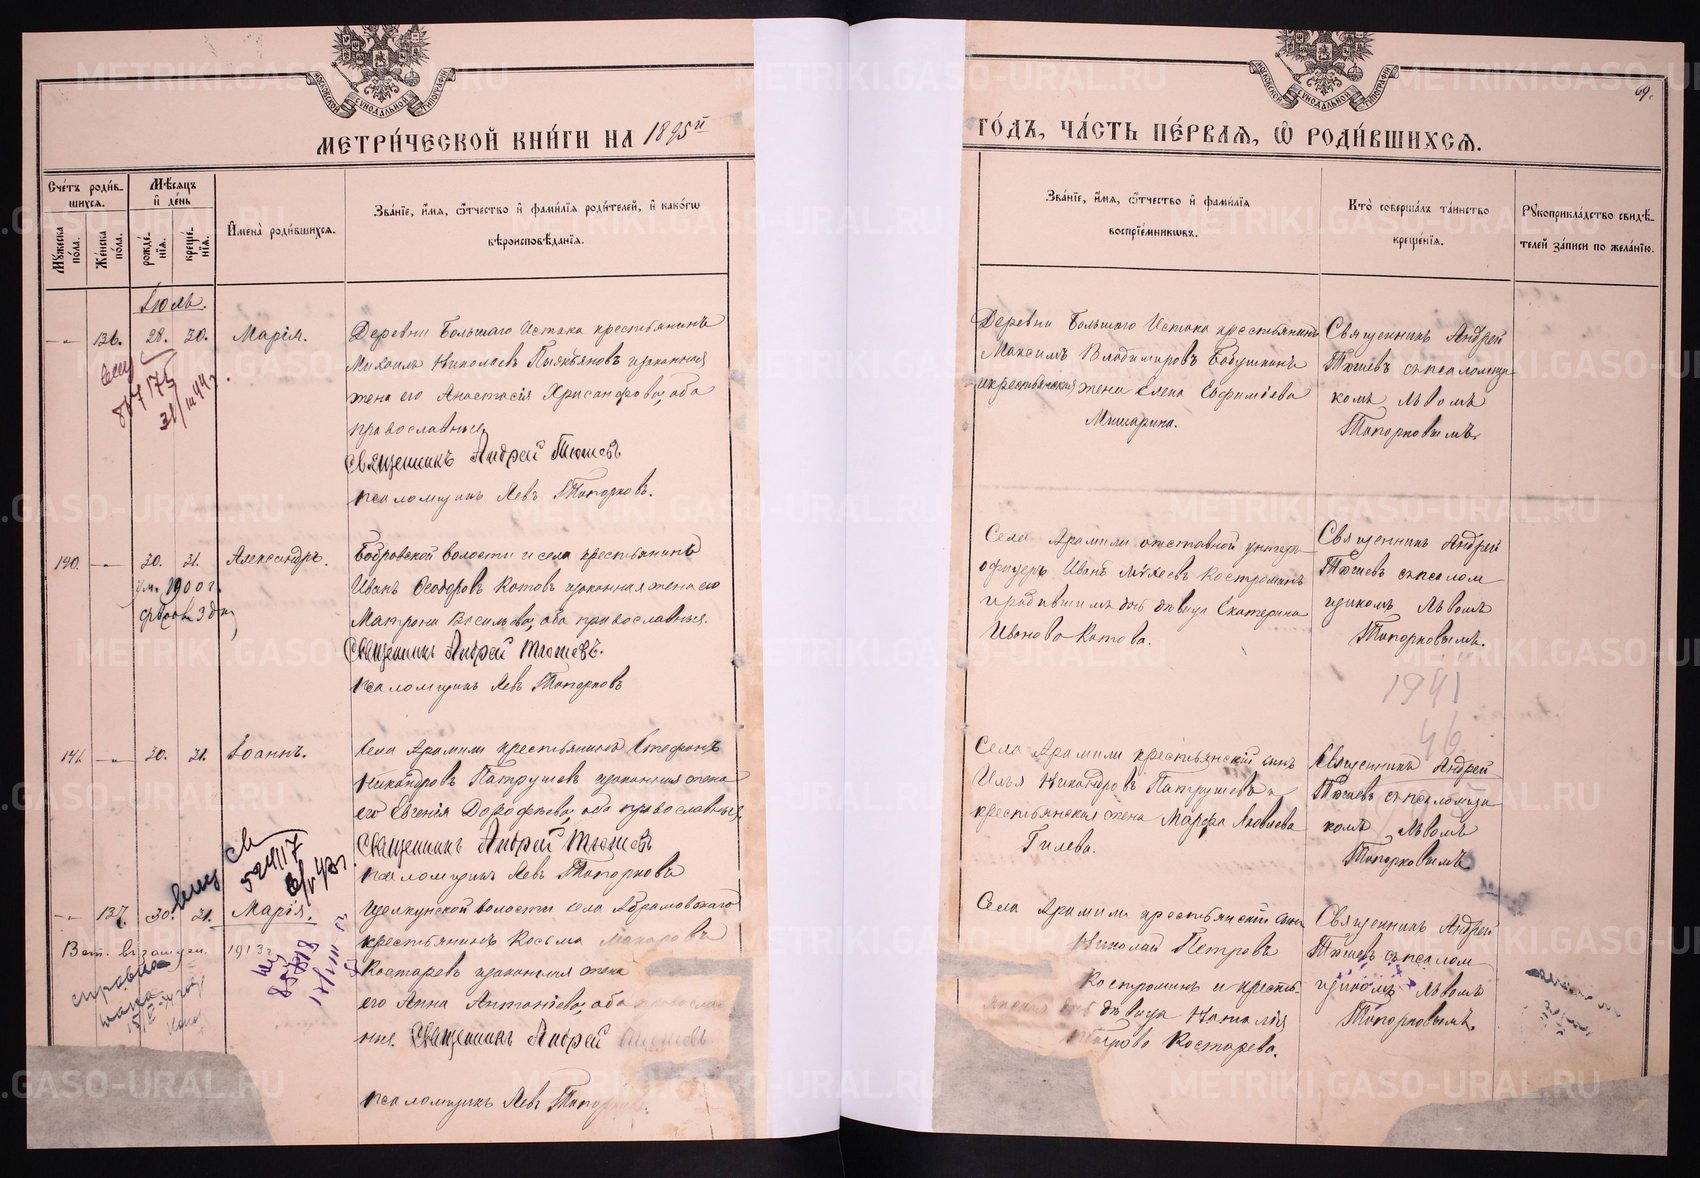 МЕТРИ́ЧЕСКОЙ КНИ́ГИ НА 1895й
ГО́ДЪ, ЧА́СТЬ ПЕ́РВАЯ, Ѡ҆ РОДИ́ВШИХСЯ.
69.
Сче́тъ роди́в-
шихся.
Мꙋ́жеска по́ла.
Же́нска по́ла.
Мѣ́сяцъ и҆ де́нь
рожде́нїя.
креще́нїя.
И҆мена̀ роди́вшихся.
Зва́нїе, и҆́мя, ѻ҆́тчество и҆ фами́лїя роди́телей, и҆ како́гѡ
вѣроисповѣ́данїя.
Зва́нїе, и҆́мя, ѻ҆́тчество и҆ фами́лїя
воспрїе́мникѡвъ.
Кто̀ соверша́лъ та́инство
креще́нїя.
Рꙋкоприкла́дство свидѣ́-
телей за́писи по жела́нїю.
Іюль.
136. 28. 30. Марія.
Деревни Большаго Истока крестьянинъ
Михаилъ Николаевъ и законная
жена его Анастасія Хрисанфова, оба
православные.
Священникъ Андрей Тюшевъ
псаломщикъ Левъ Топорковъ.
Деревни Большаго Истока крестьянинъ
Максимъ Владимировъ Бабушкинъ
и крестьянская жена Елена Евфиміева
Мишарина.
Священникъ Андрей
Тюшевъ съ псаломщи-
комъ Львомъ
Топорковымъ.
190. 30. 31. Александръ.
Бобровской волости и села крестьянинъ
Иванъ Ѳеодоровъ Котовъ и законная жена его
Матрона Васильева, оба православные.
Священникъ Андрей Тюшевъ.
псаломщикъ Левъ Топорковъ
Села Арамили отставной унтеръ-
офицеръ Иванъ Костроминъ
дѣвица Екатерина
Иванова Котова.
Священникъ Андрей
Тюшевъ съ псалом
щикомъ Львомъ
Топорковымъ.
1941
46
141. 30. 31. Іоаннъ.
Села Арамили крестьянинъ Стефанъ
Никандровъ Патрушевъ и законная жена
его Евгенія Дорофѣева, оба православные.
Священникъ Андрей Тюшевъ
псаломщикъ Левъ Топорковъ
Села Арамили крестьянскій сынъ
Илья Никандровъ Патрушевъ и
крестьянская жена Марфа Яковлева
Гилева.
Священникъ Андрей
Тюшевъ съ псаломщи
комъ Львомъ
Топорковымъ
137. 30. 31. Марія.
1913 г.
Щелкунской волости села Абрамовскаго
крестьянинъ Косьма Макаровъ
Костаревъ и законная жена
его Анна Антоніева, оба правосла-
вные. Священникъ Андрей Тюшевъ
псаломщикъ Левъ Топорковъ.
Села Арамили крестьянскій сынъ
Николай Петровъ
Костроминъ и кресть-
дѣвица Наталія
Костарева.
Священникъ Андрей
Тюшевъ съ псалом
щикомъ Львомъ
Топорковымъ.
METRIKI.GASO-URAL.RU